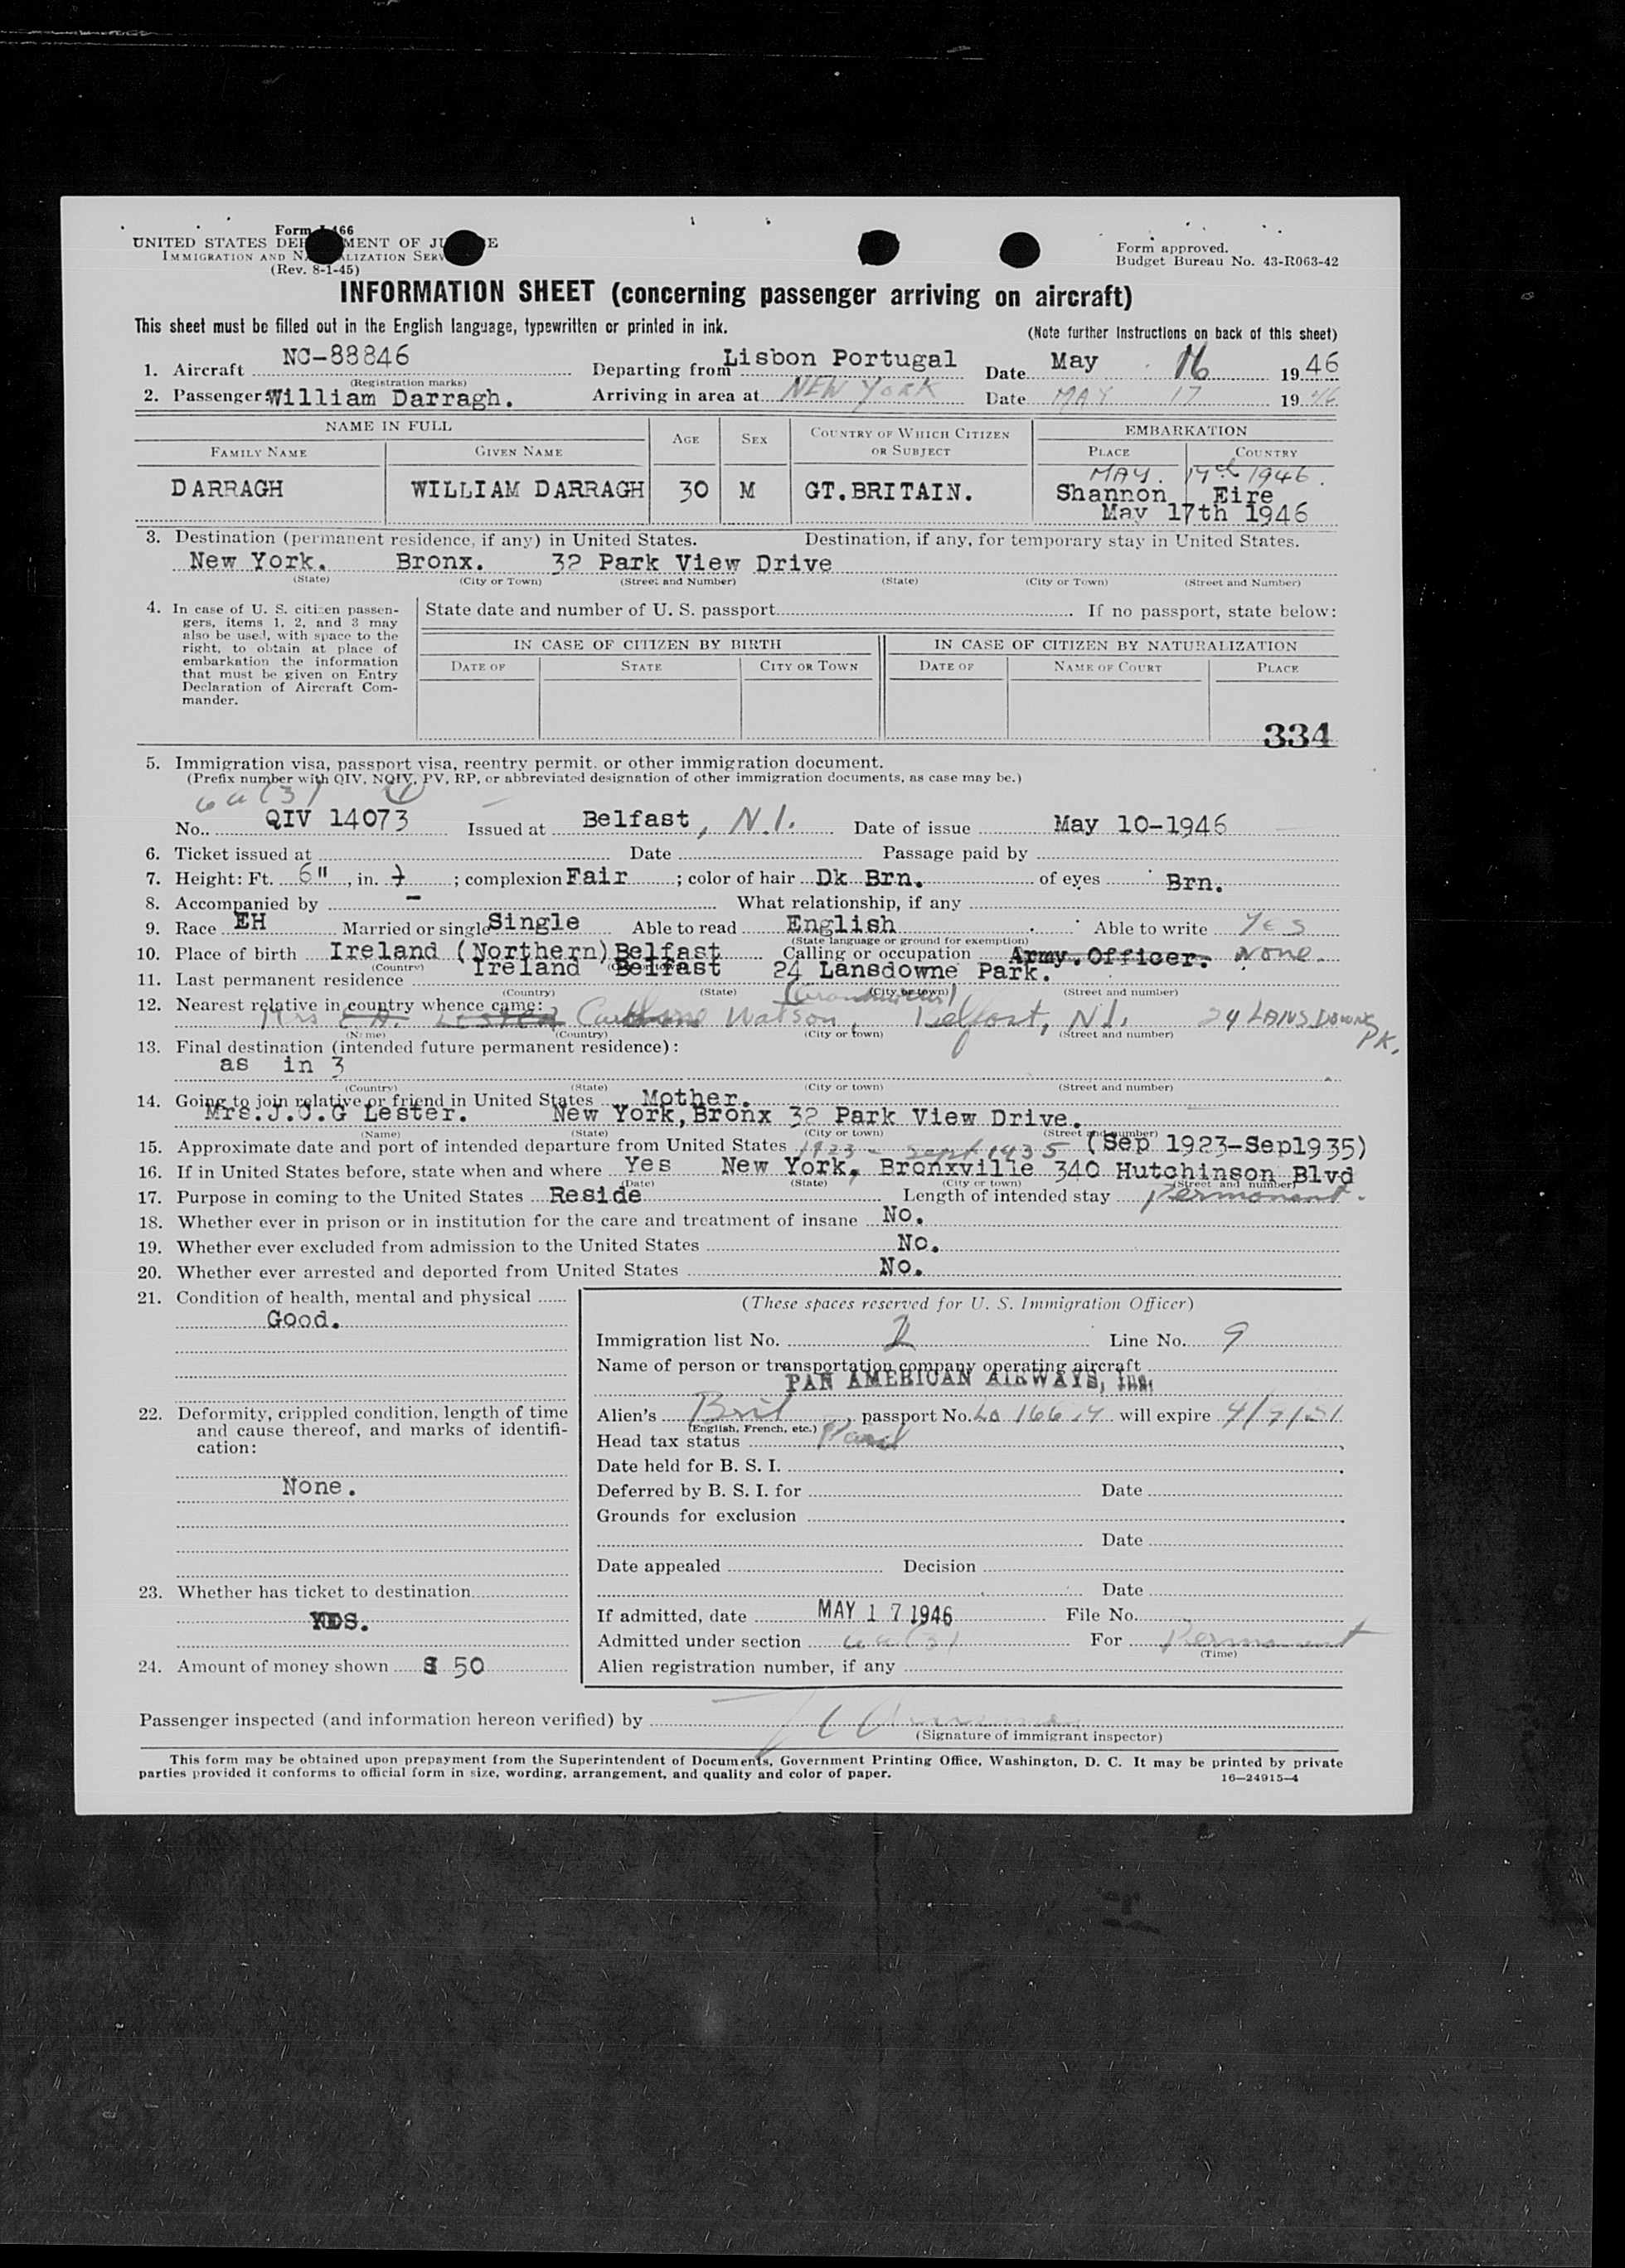 Form I-466
UNITED STATES DEPARTMENT OF JUSTICE
IMMIGRATION AND NATURALIZATION SERV
(Rev. 8-1-45)
Form approved.
Budget Bureau No. 43-R063-42
INFORMATION SHEET (concerning passenger arriving on aircraft)
This sheet must be filled out in the English language, typewritten or printed in ink.
(Note further instructions on back of this sheet)
1. Aircraft NC-88846 Departing from Lisbon Portugal Date May 16 1946
(Registration marks)
2. Passenger: William Darragh. Arriving in area at NEW YORK Date MAY 17 1946
NAME IN FULL AGE SEX COUNTRY OF WHICH CITIZEN OR SUBJECT EMBARKATION
FAMILY NAME GIVEN NAME PLACE COUNTRY
MAY. 17th 1946.
DARRAGH WILLIAM DARRAGH 30 M GT.BRITAIN. Shannon Eire
May 17th 1946
3. Destination (permanent residence, if any) in United States. Destination, if any, for temporary stay in United States.
New York. Bronx. 32 Park View Drive
(State) (City or Town) (Street and Number) (State) (City or Town) (Street and Number)
4. In case of U. S. citizen passengers, items 1, 2, and 3 may also be used, with space to the right, to obtain at place of embarkation the information that must be given on Entry Declaration of Aircraft Commander.
State date and number of U. S. passport If no passport, state below:
IN CASE OF CITIZEN BY BIRTH IN CASE OF CITIZEN BY NATURALIZATION
DATE OF STATE CITY OR TOWN DATE OF NAME OF COURT PLACE
334
5. Immigration visa, passport visa, reentry permit, or other immigration document.
(Prefix number with QIV, NQIV, PV, RP, or abbreviated designation of other immigration documents, as case may be.)
6a(3) (1)
No. QIV 14073 Issued at Belfast, N.I. Date of issue May 10-1946
6. Ticket issued at Date Passage paid by
7. Height: Ft. 6", in. ; complexion Fair ; color of hair Dk Brn. of eyes Brn.
8. Accompanied by - What relationship, if any
9. Race EH Married or single Single Able to read English Able to write YES
(State language or ground for exemption)
10. Place of birth Ireland (Northern) Belfast Calling or occupation Army. Officer. None.
(Country)
11. Last permanent residence Ireland Belfast 24 Lansdowne Park.
(Country) (State) (City or town) (Street and number)
12. Nearest relative in country whence came:
Mrs LESTER Watson, Belfast, N.I. 24 LANSDOWNE PK.
(Name) (Country) (City or town) (Street and number)
13. Final destination (intended future permanent residence):
as in 3
(Country) (State) (City or town) (Street and number)
14. Going to join relative or friend in United States Mother.
Mrs.J.O.G Lester. New York, Bronx 32 Park View Drive.
(Name) (State) (City or town) (Street and number)
15. Approximate date and port of intended departure from United States 1923 - Sept 1935 (Sep 1923-Sep1935)
16. If in United States before, state when and where Yes New York. Bronxville 340 Hutchinson Blvd
(Date) (State) (City or town) (Street and number)
17. Purpose in coming to the United States Reside Length of intended stay Permanent.
18. Whether ever in prison or in institution for the care and treatment of insane No.
19. Whether ever excluded from admission to the United States No.
20. Whether ever arrested and deported from United States No.
21. Condition of health, mental and physical
Good.
22. Deformity, crippled condition, length of time and cause thereof, and marks of identification:
None.
23. Whether has ticket to destination
YES.
24. Amount of money shown $ 50
(These spaces reserved for U. S. Immigration Officer)
Immigration list No. 2 Line No. 9
Name of person or transportation company operating aircraft
PAN AMERICAN AIRWAYS, Inc.
Alien's Brit passport No. will expire 4/7/51
(English, French, etc.)
Head tax status Paid
Date held for B. S. I.
Deferred by B. S. I. for Date
Grounds for exclusion
Date
Date appealed Decision
Date
If admitted, date MAY 17 1946 File No.
Admitted under section 6a(3) For Permanent
(Time)
Alien registration number, if any
Passenger inspected (and information hereon verified) by
(Signature of immigrant inspector)
This form may be obtained upon prepayment from the Superintendent of Documents, Government Printing Office, Washington, D. C. It may be printed by private
parties provided it conforms to official form in size, wording, arrangement, and quality and color of paper.
16—24915-4